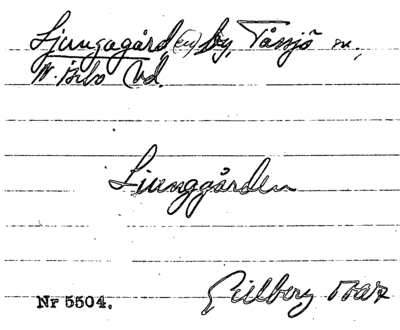 Ljungagård(en) by, Tåssjö sn.,
N. Åsbo hd.
Ljunggården
Nr 5504. Gillberg 1842